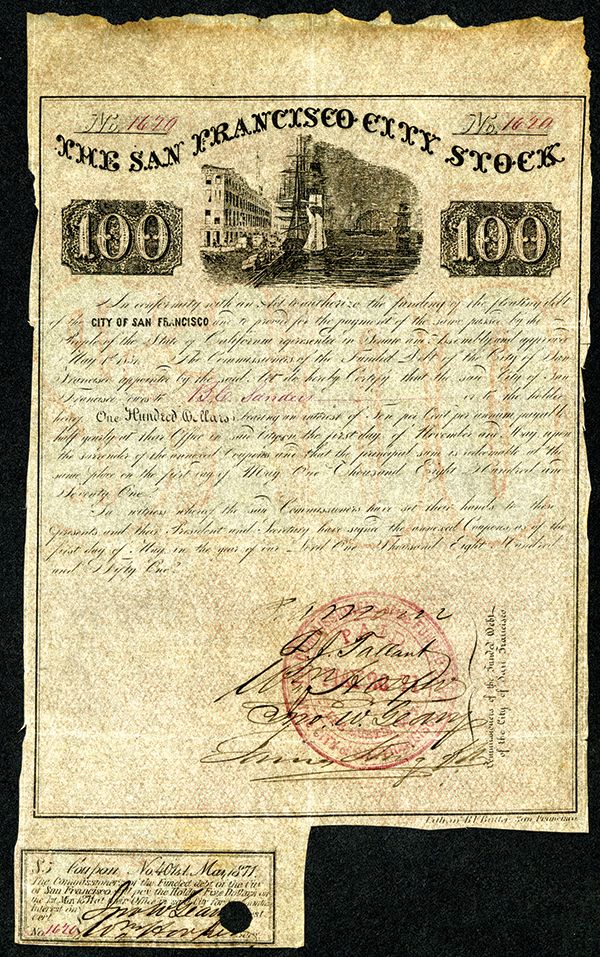 No. 1620 No. 1620
THE SAN FRANCISCO CITY STOCK
100 100
In conformity with an Act to authorize the funding of the floating debt
of the CITY OF SAN FRANCISCO and to provide for the payment of the same passed by the
People of the State of California represented in Senate and Assembly and approved
May 1st 1851 The Commissioners of the Funded Debt of the City of San
Francisco appointed by the said Act do hereby Certify that the said City of San
Francisco owes to Sanders or to the holder
hereof One Hundred Dollars bearing an interest of Ten per Cent per annum payable
half yearly at their Office in said City on the first day of November and May upon
the surrender of the annexed Coupons and that the principal sum is redeemable at the
same place on the first day of May One Thousand Eight Hundred and
Seventy One
In witness whereof the said Commissioners have set their hands to these
presents and their President and Secretary have signed the annexed Coupons as of the
first day of May in the year of our Lord One Thousand Eight Hundred
and Fifty One
D. J. Tallant
Wm Hooper
Jno W. Geary
James King of Wm
Commissioners of the Funded Debt
of the City of San Francisco
PAID
Lith. B.F. Butler San Francisco
$5 Coupon No. 40 1st May 1871
The Commissioners of the Funded debt of the City
of San Francisco will pay the Holder Five Dollars on
the 1st May 1871 at their Office in said City for
interest on
Cert.
No. 1620
Jno W. Geary
Wm Hooper